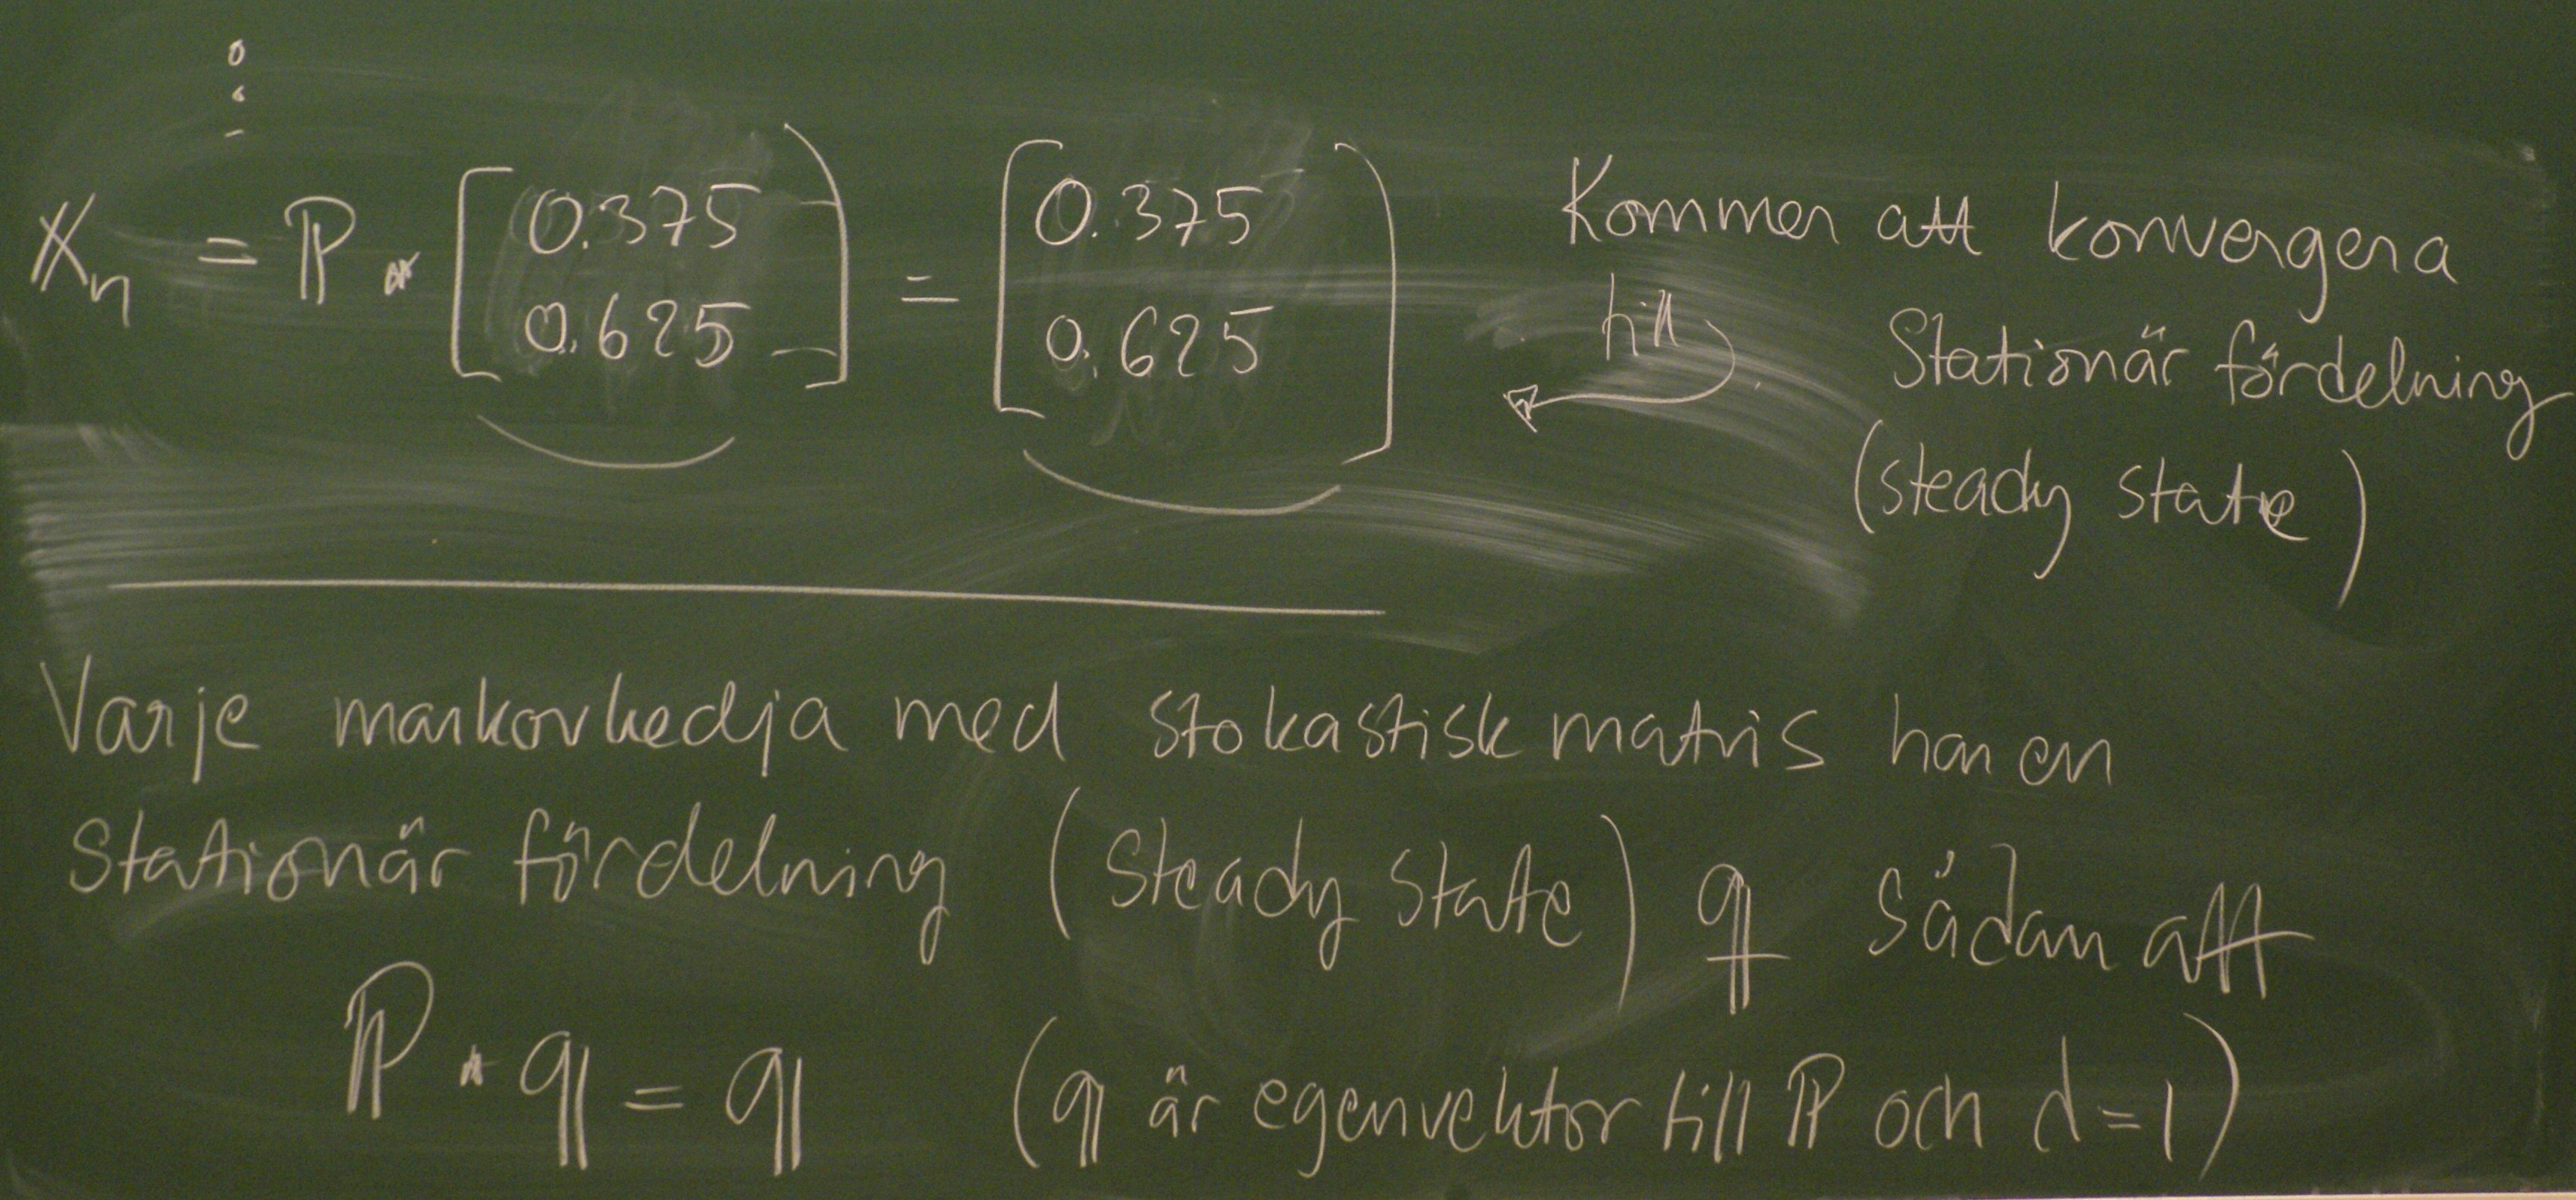 ⋮
Xn = P · [0.375 0.625] = [0.375 0.625]
Kommer att konvergera
till
Stationär fördelning
(steady state)
Varje markovkedja med stokastisk matris har en
Stationär fördelning (Steady State) q sådan att
P · q = q (q är egenvektor till P och λ=1)